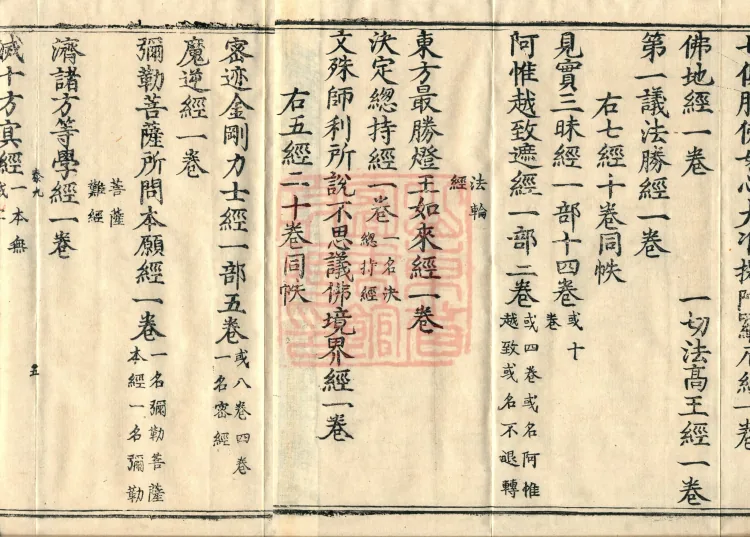 佛地經一卷 一切法高王經一卷
第一議法勝經一卷
右七經十卷同帙
見實三昧經一部十四卷或十
卷
阿惟越致遮經一部二卷或四卷或名阿惟
越致或名不退轉
法輪
經
東方最勝燈王如來經一卷
決定總持經一卷一名決
總持經
文殊師利所說不思議佛境界經一卷
右五經二十卷同帙
密迹金剛力士經一部五卷或八卷四卷
一名密經
魔逆經一卷
彌勒菩薩所問本願經一卷一名彌勒菩薩
本經一名彌勒
菩薩
難經
濟諸方等學經一卷
卷九
五
滅十方冥經一本無